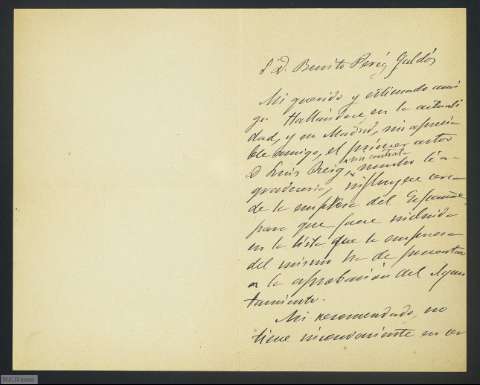 S. D. Benito Peréz Galdós
Mi querido y estimado ami
go. Hallándose en la actuali
dad, y en Madrid, mi aprecia
ble amigo, el primer actor
D. Luis Reig, sin contrata
le a-
gradeceria, influyese cerca
de la empresa del Español,
para que fuese incluido
en la lista que la empresa
del mismo ha de presentar
a la aprobación del Ayun
tamiento.
Mi recomendado, no
tiene inconveniente en